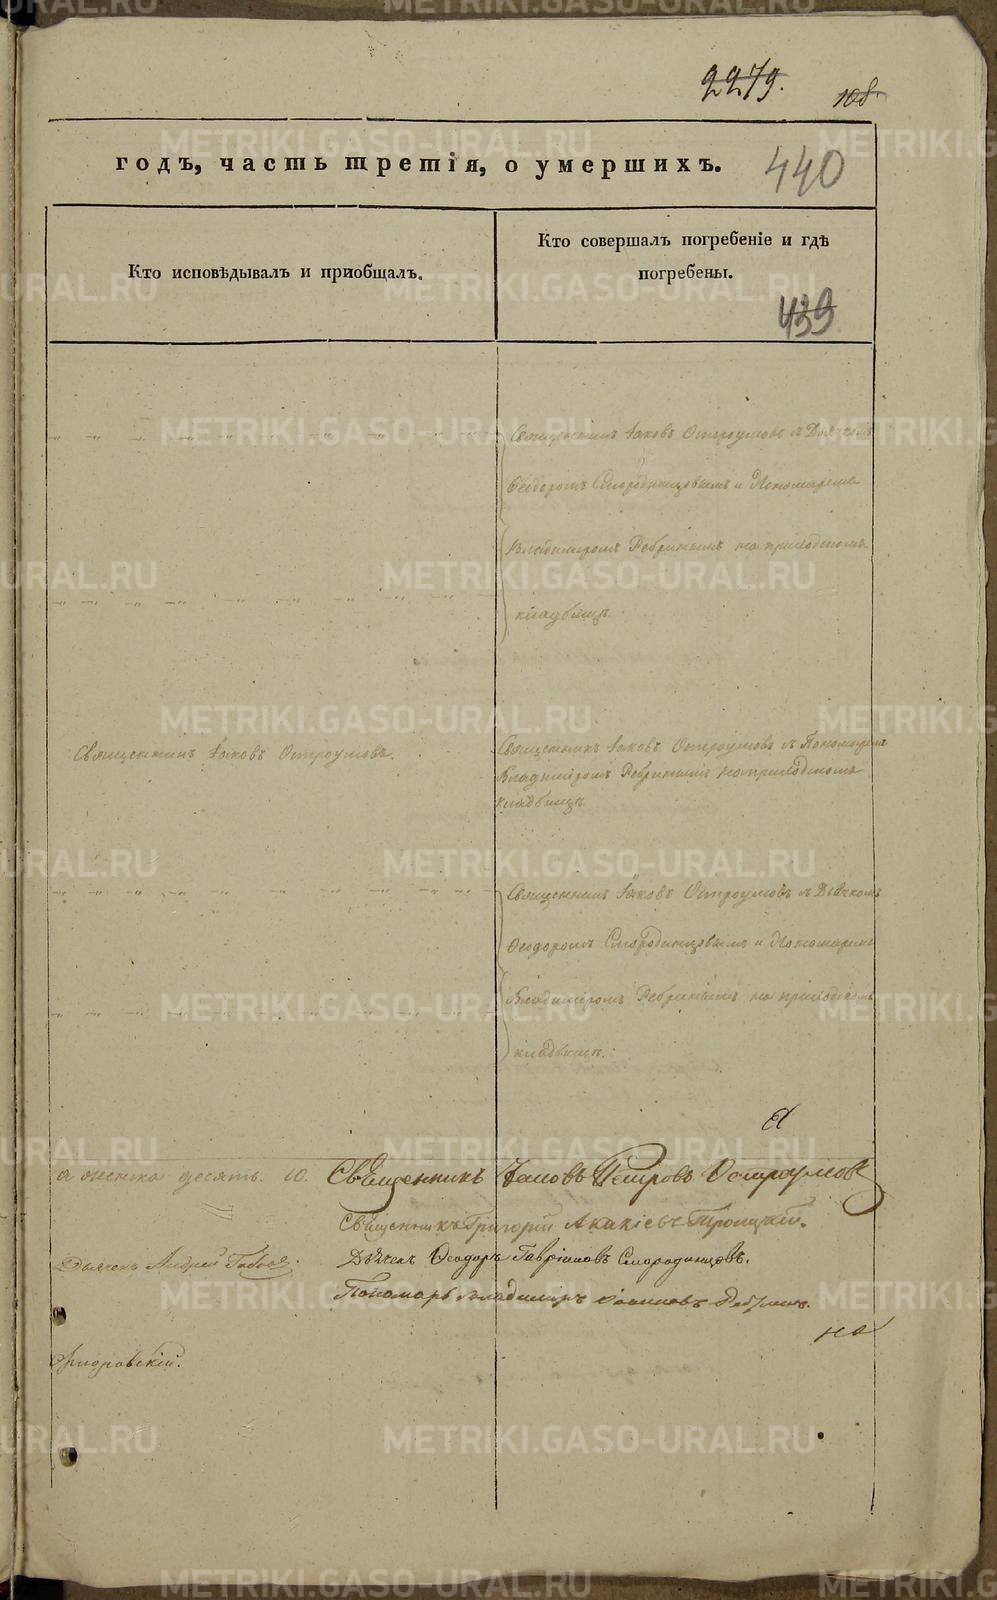 2279.
108.
годъ, часть третія, о умершихъ.
440
Кто исповѣдывалъ и пріобщалъ.
Кто совершалъ погребеніе и гдѣ
погребены.
439
Священникъ Іаковъ Остроумовъ съ Дьячкомъ
Ѳеодоромъ Смородинцовымъ и Пономаремъ
Владиміромъ Ребринымъ на приходскомъ
кладбищѣ.
Священникъ Іаковъ Остроумовъ.
Священникъ Іаковъ Остроумовъ съ Пономаремъ
Владиміромъ Ребринымъ на приходскомъ
кладбищѣ
Священникъ Іаковъ Остроумовъ съ Дьячкомъ
Ѳеодоромъ Смородинцовымъ и Пономаремъ
Владиміромъ Ребринымъ на приходскомъ
кладбищѣ.
десять. 10.
Священникъ Іаковъ Петровъ Остроумовъ
Священникъ Григорій Акакіевъ Троицкій.
Дьячекъ Андрей
Дьячекъ Ѳеодоръ Гавріиловъ Смородинцовъ.
Пономарь Владиміръ Іоанновъ Ребринъ.
на
METRIKI.GASO-URAL.RU